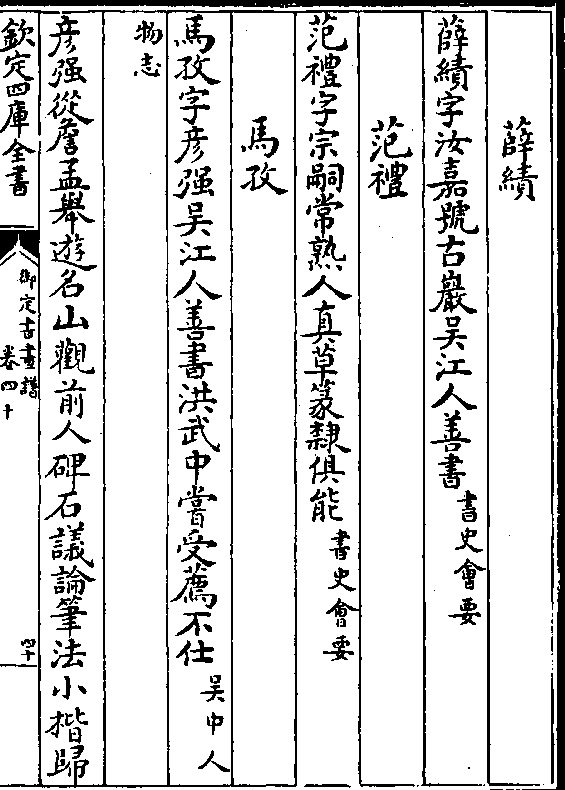 薛績
薛績字汝嘉號古巖吳江人善書書史會要
范禮
范禮字宗嗣常熟人真草篆隸俱能書史會要
馬孜
馬孜字彥强吳江人善書洪武中嘗受薦不仕吳中人
物志
彥强從詹孟舉遊名山觀前人碑石議論筆法小楷歸
欽定四庫全書
御定書畫譜
卷四十
四十